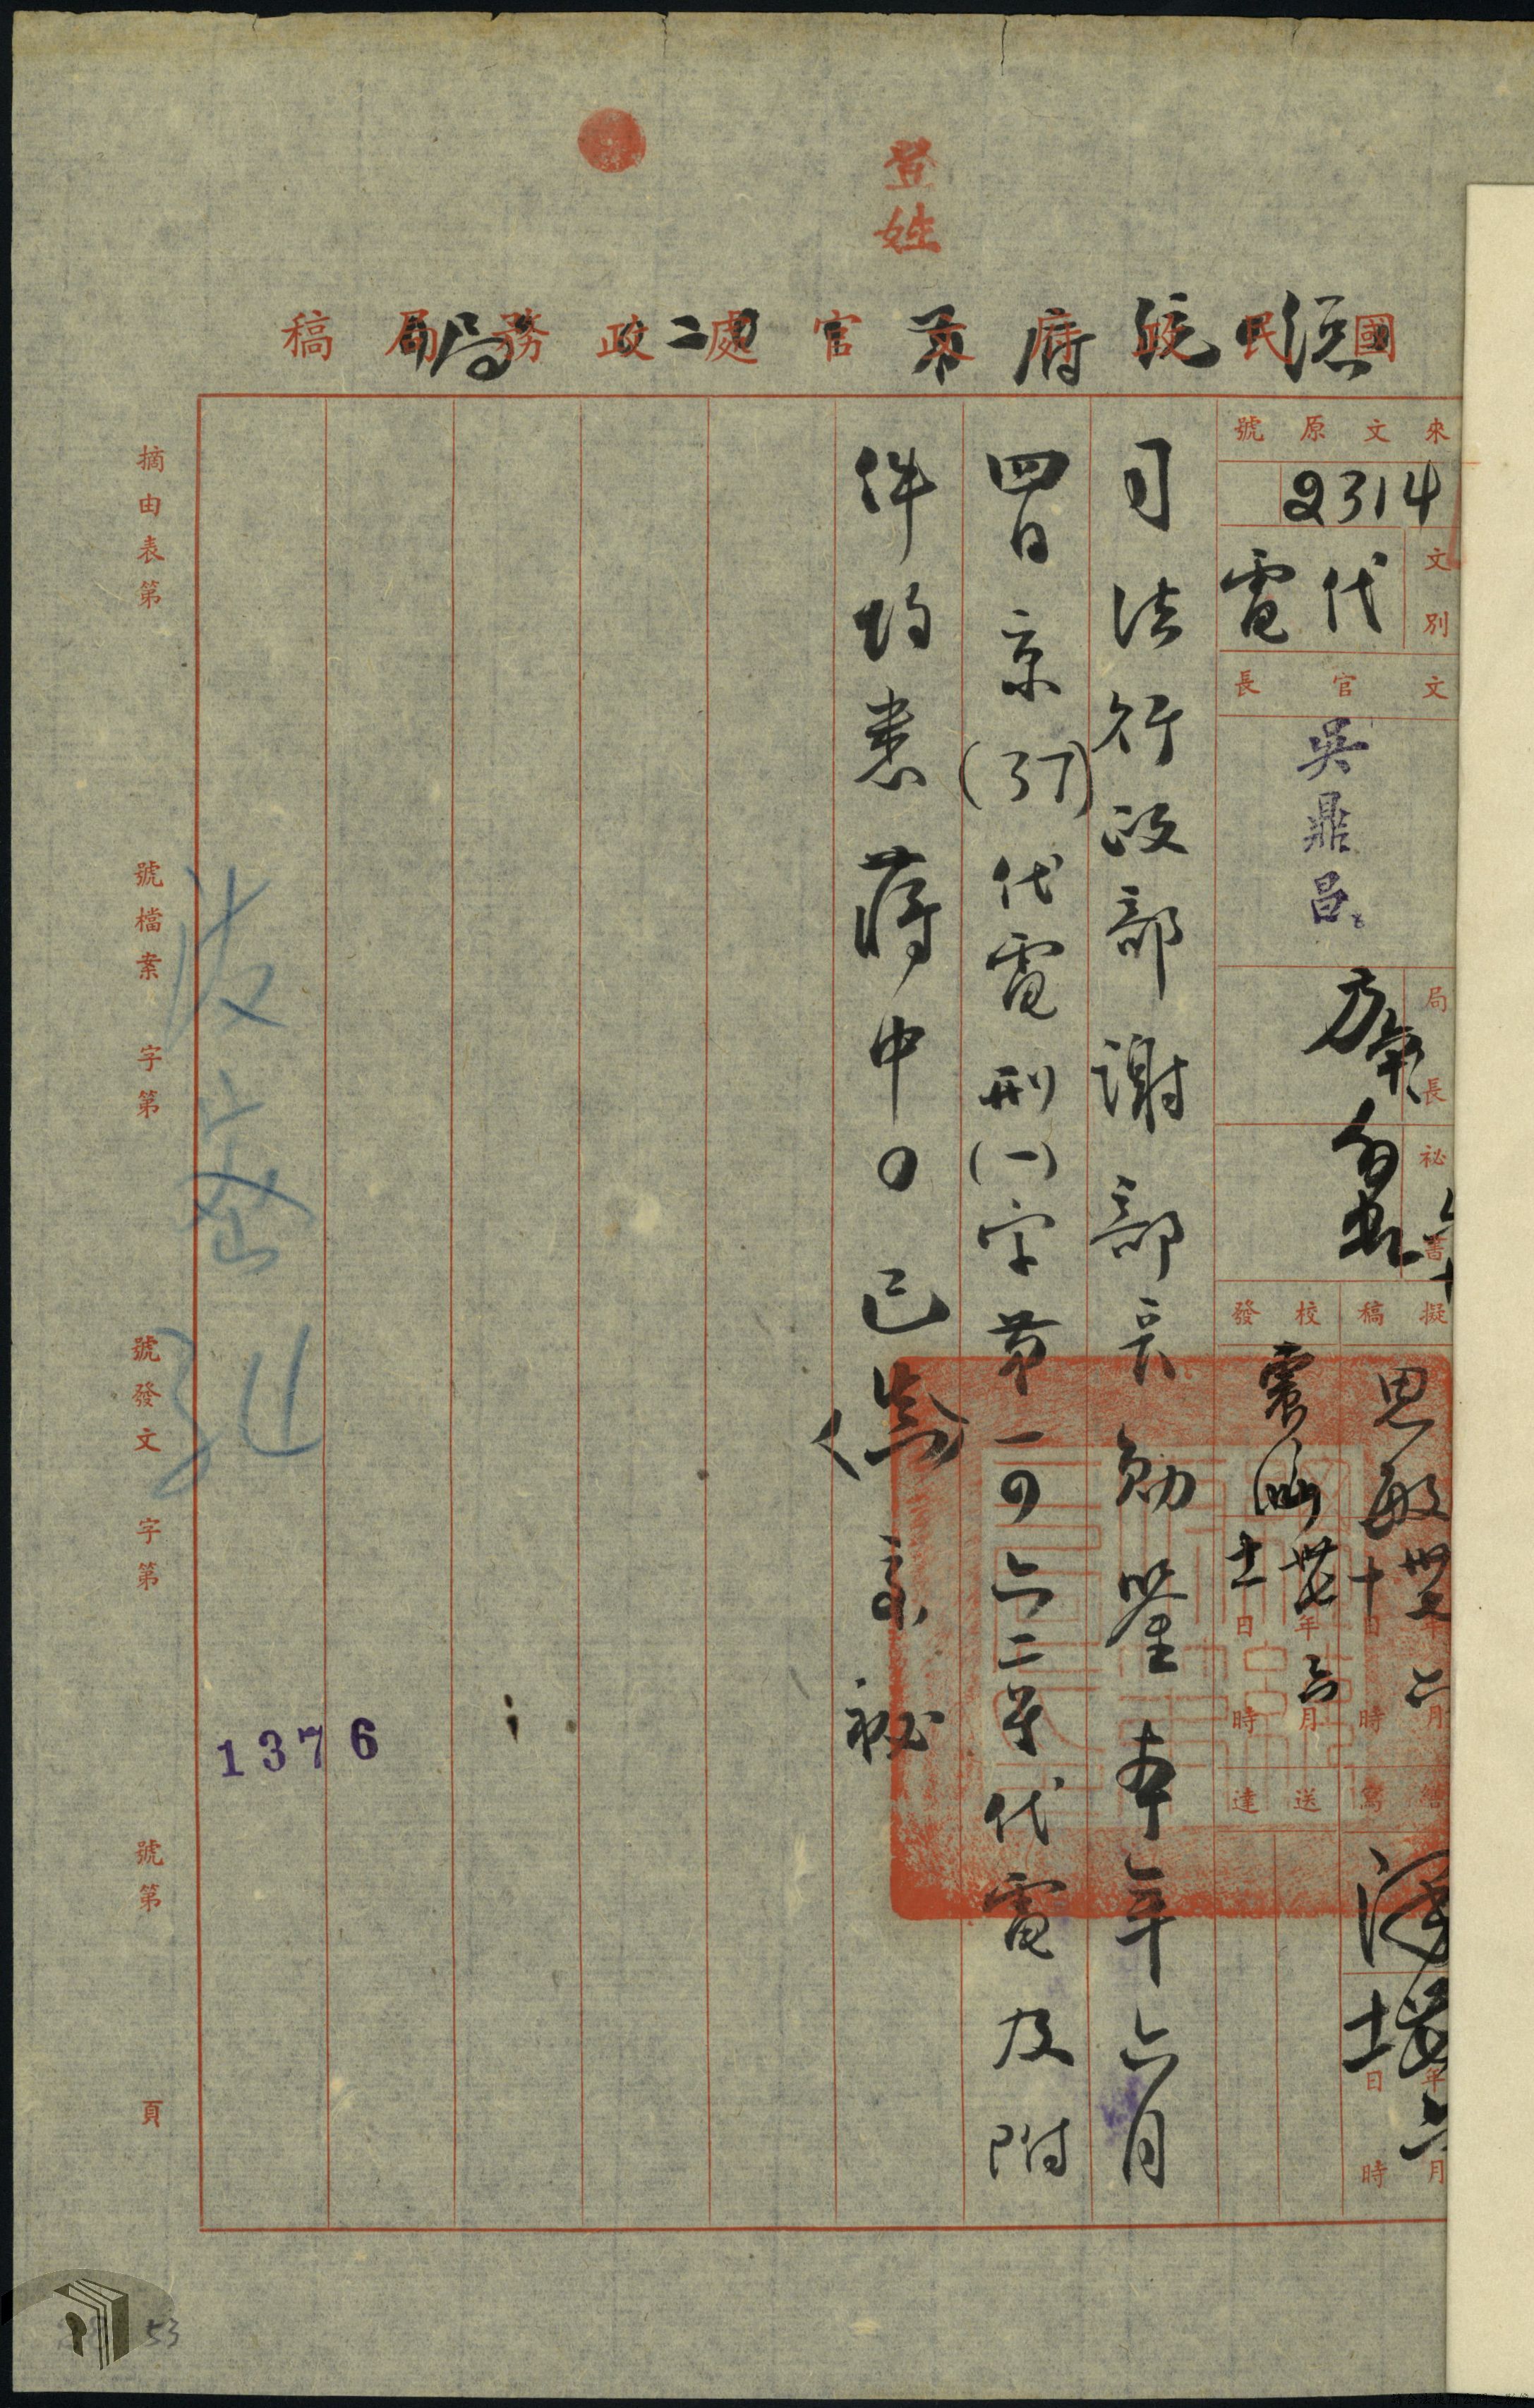 登
國民政府文官處政務局稿
總統府第二局
來文原號
2314
文別
代電
文官長
吳鼎昌
局長
祕書
擬稿
思敏
卅七年六月十日時
校發
震
卅七年六月十一日時
繕寫
年六月十一日時
送達
司法行政部謝部長勛鑒本年六月
四日京(37)代電刑(一)字第一四六二號代電及附
件均悉蔣中〇已
府祕
摘由表第號檔案字第號發文字第號第頁
1376
53